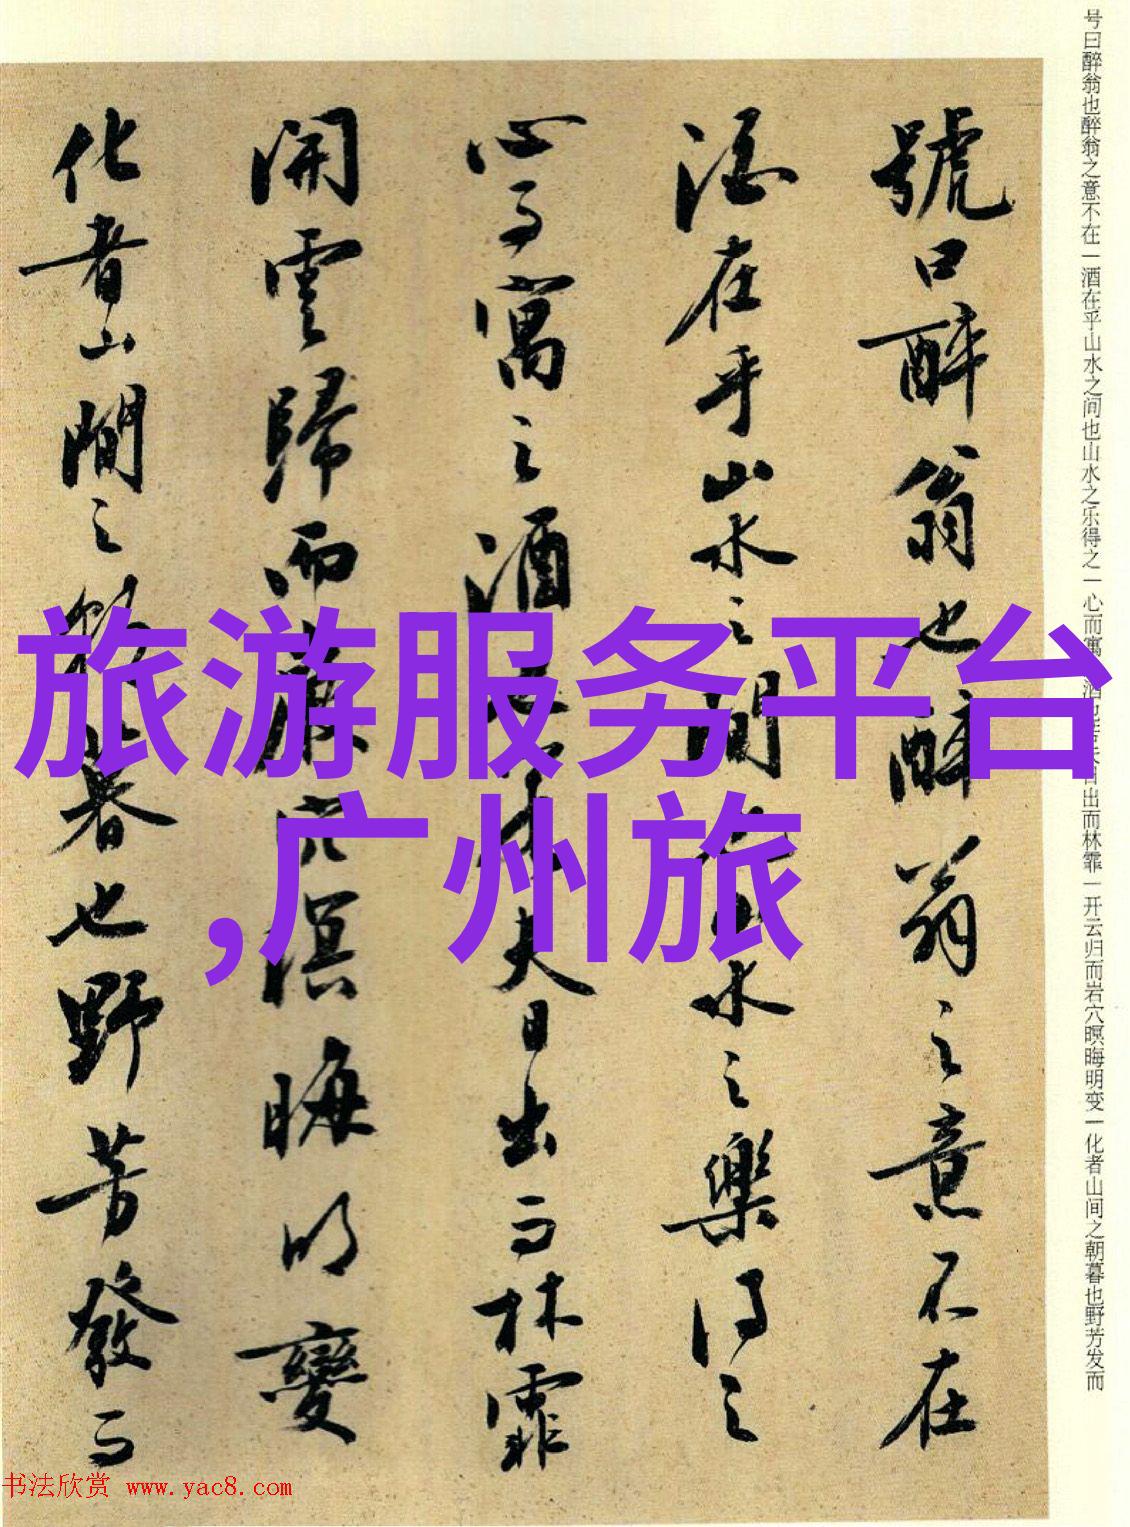 号曰醉翁也醉翁之意不在一酒在乎山水之间也山水之乐得之一心而寓酒也若夫日出而林霏一开云归而岩穴暝晦明变一化者山间之朝暮也野芳发而
號曰醉翁也醉翁之意不在
酒在乎山水之間也山水之樂得之
心而寓之酒也若夫日出而林霏
開雲歸而巖穴暝晦明變
化者山間之朝暮也野芳發而
旅游服务平台
,广州旅
书法欣赏 www.yac8.com